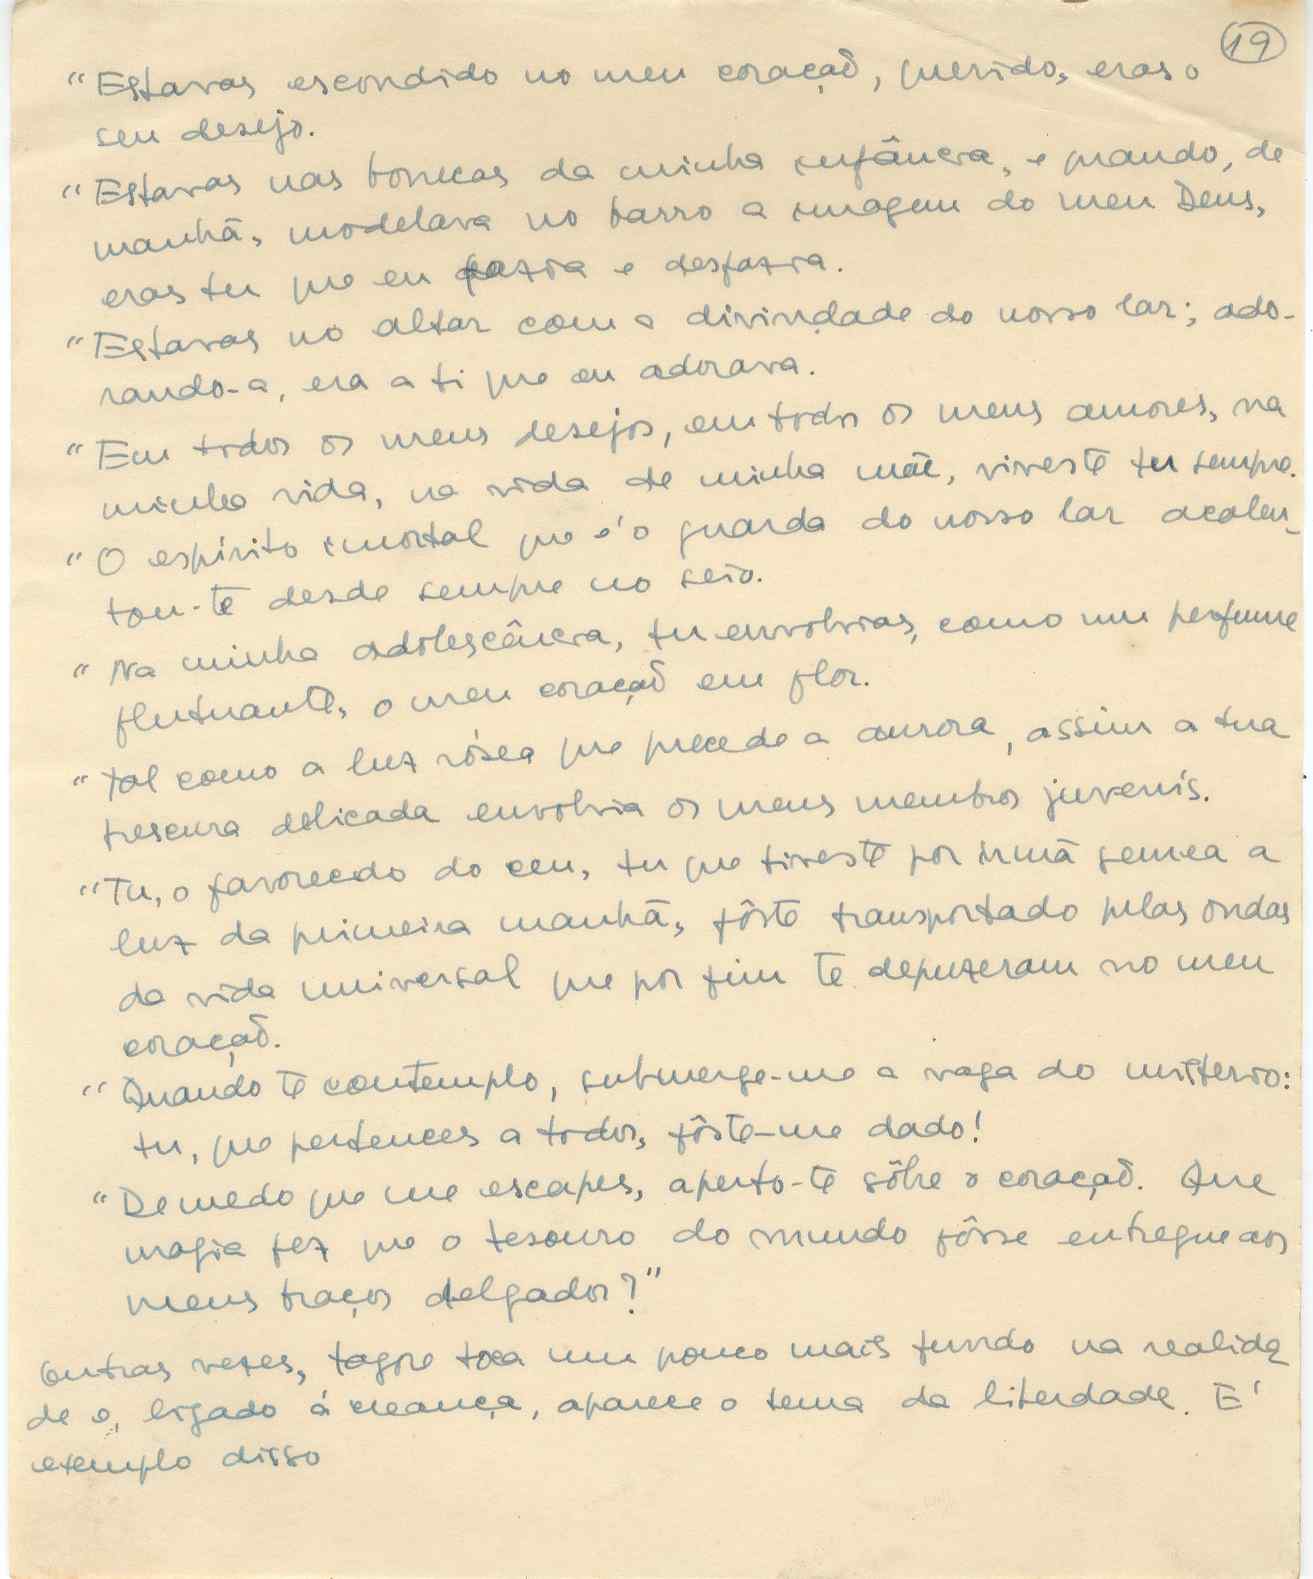 19
"Estavas escondido no meu coração, querido, eras o
seu desejo.
"Estavas nas bonecas da minha infância, e quando, de
manhã, modelava no barro a imagem do meu Deus,
eras tu que eu fazia e desfazia.
"Estavas no altar com a divindade do nosso lar; ado-
rando-a, era a ti que eu adorava.
"Em todos os meus desejos, em todos os meus amores, na
minha vida, na vida de minha mãe, viveste tu sempre.
"O espírito imortal que é o guarda do nosso lar acalen-
tou-te desde sempre no seio.
"Na minha adolescência, tu envolvias, como um perfume
flutuante, o meu coração em flor.
"Tal como a luz rósea que precede a aurora, assim a tua
frescura delicada envolvia os meus membros juvenís.
"Tu, o favorecido do ceu, tu que tiveste por irmã gemea a
luz da primeira manhã, fôste transportado pelas ondas
da vida universal que por fim te depuzeram no meu
coração.
"Quando te contemplo, submerge-me a vaga do misterio:
tu, que pertences a todos, fôste-me dado!
"De medo que me escapes, aperto-te sôbre o coração. Que
magia fez que o tesouro do mundo fôsse entregue aos
meus braços delgados?"
Outras vezes, tagore toca um pouco mais fundo na realida
de e, ligado á creança, aparece o tema da liberdade. E'
exemplo disso